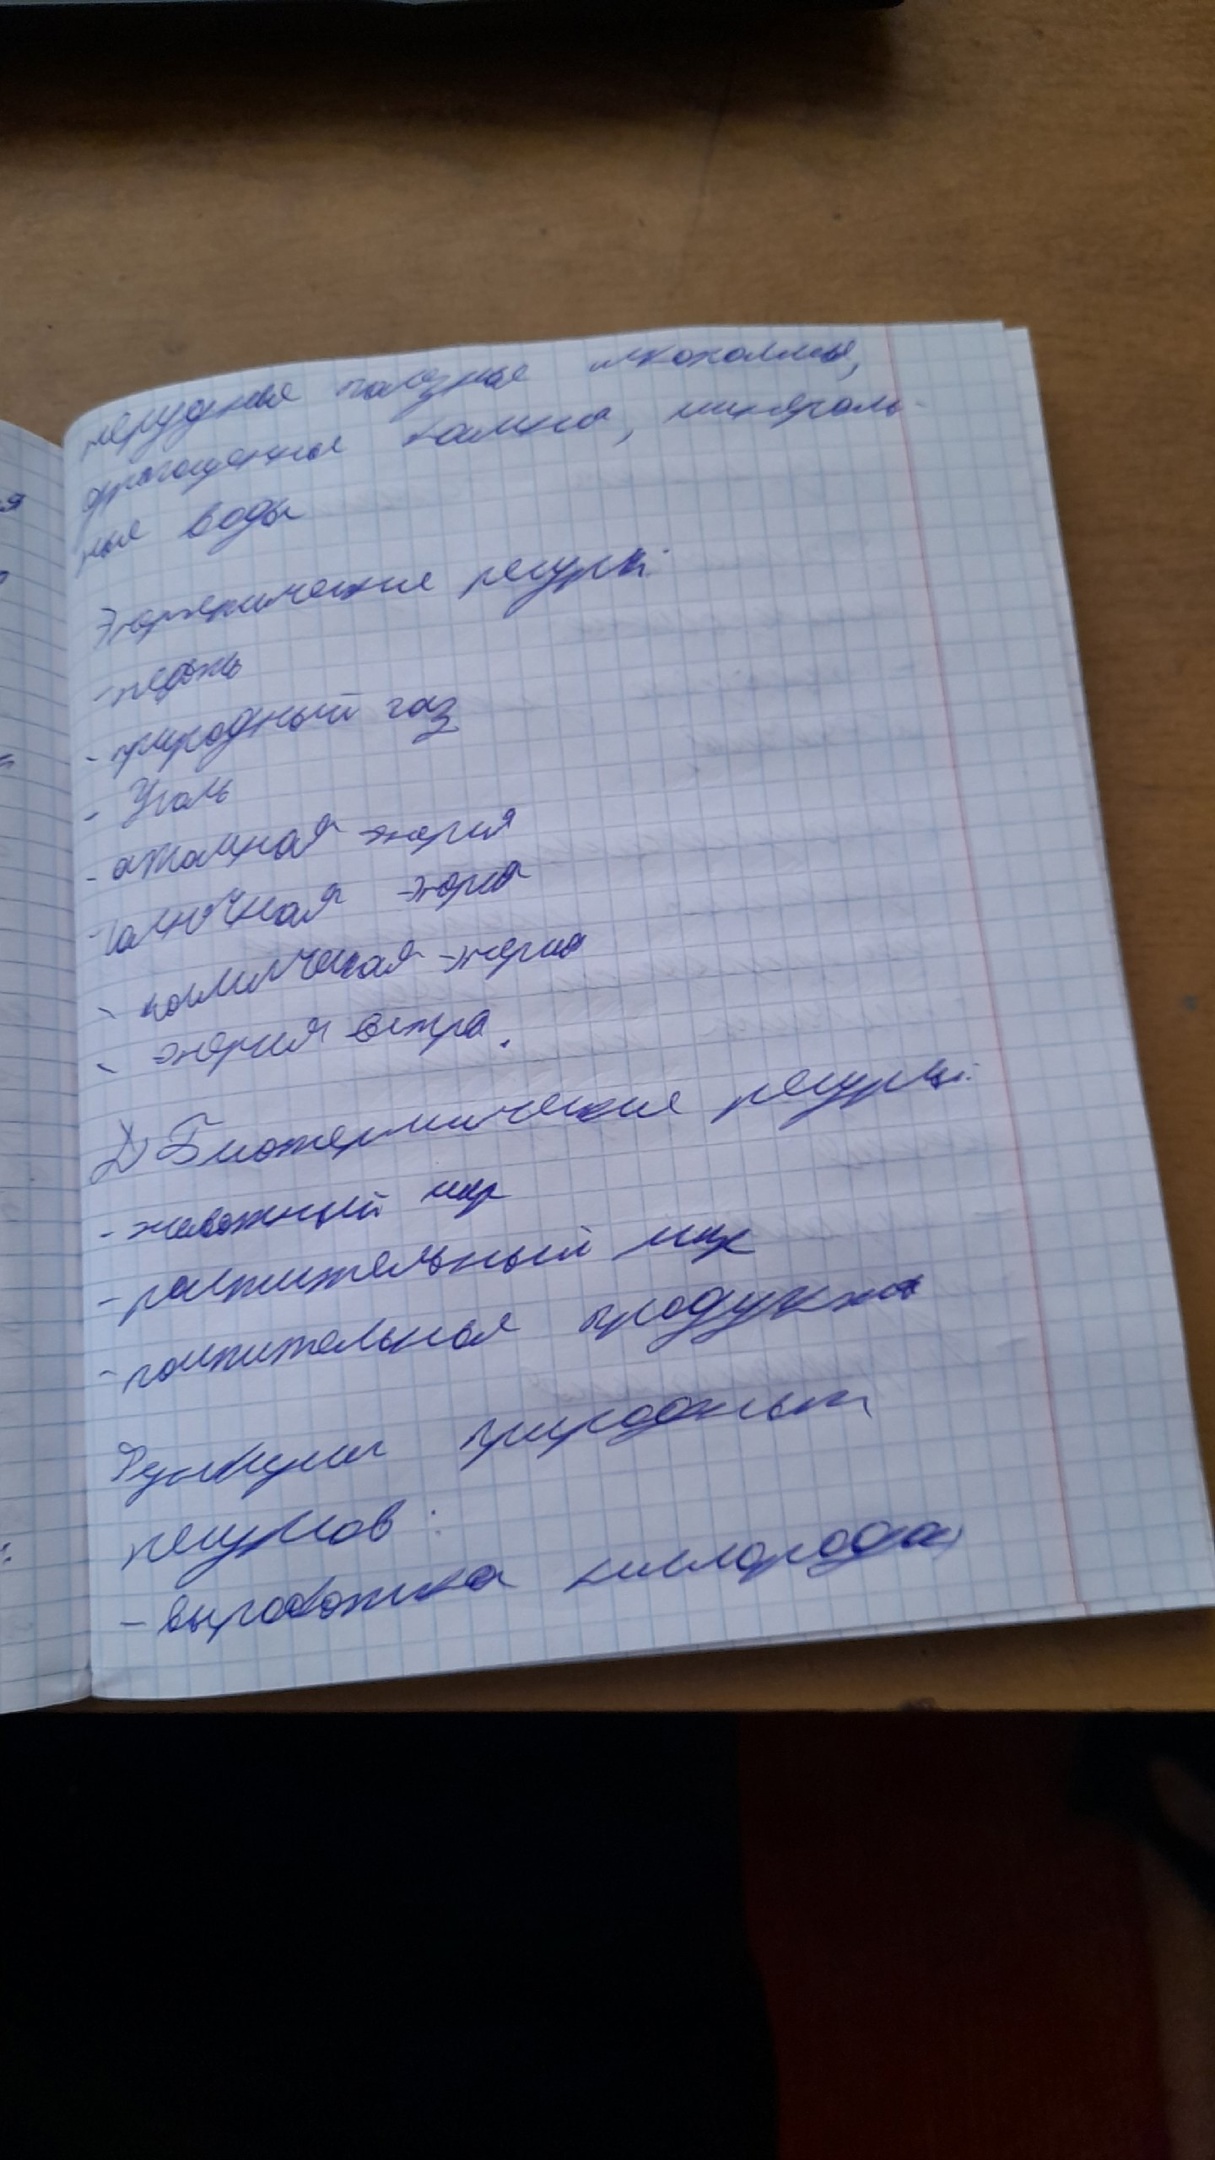 нерудные полезные ископаемые,
драгоценные камни, минераль-
ные воды
Энергетические ресурсы:
- нефть
- природный газ
- Уголь
- атомная энергия
- солнечная энергия
- космическая энергия
- энергия ветра.
2) Биотермические ресурсы:
- животный мир
- растительный мир
- растительная продукты
Функции природных
ресурсов:
- выработка кислорода,